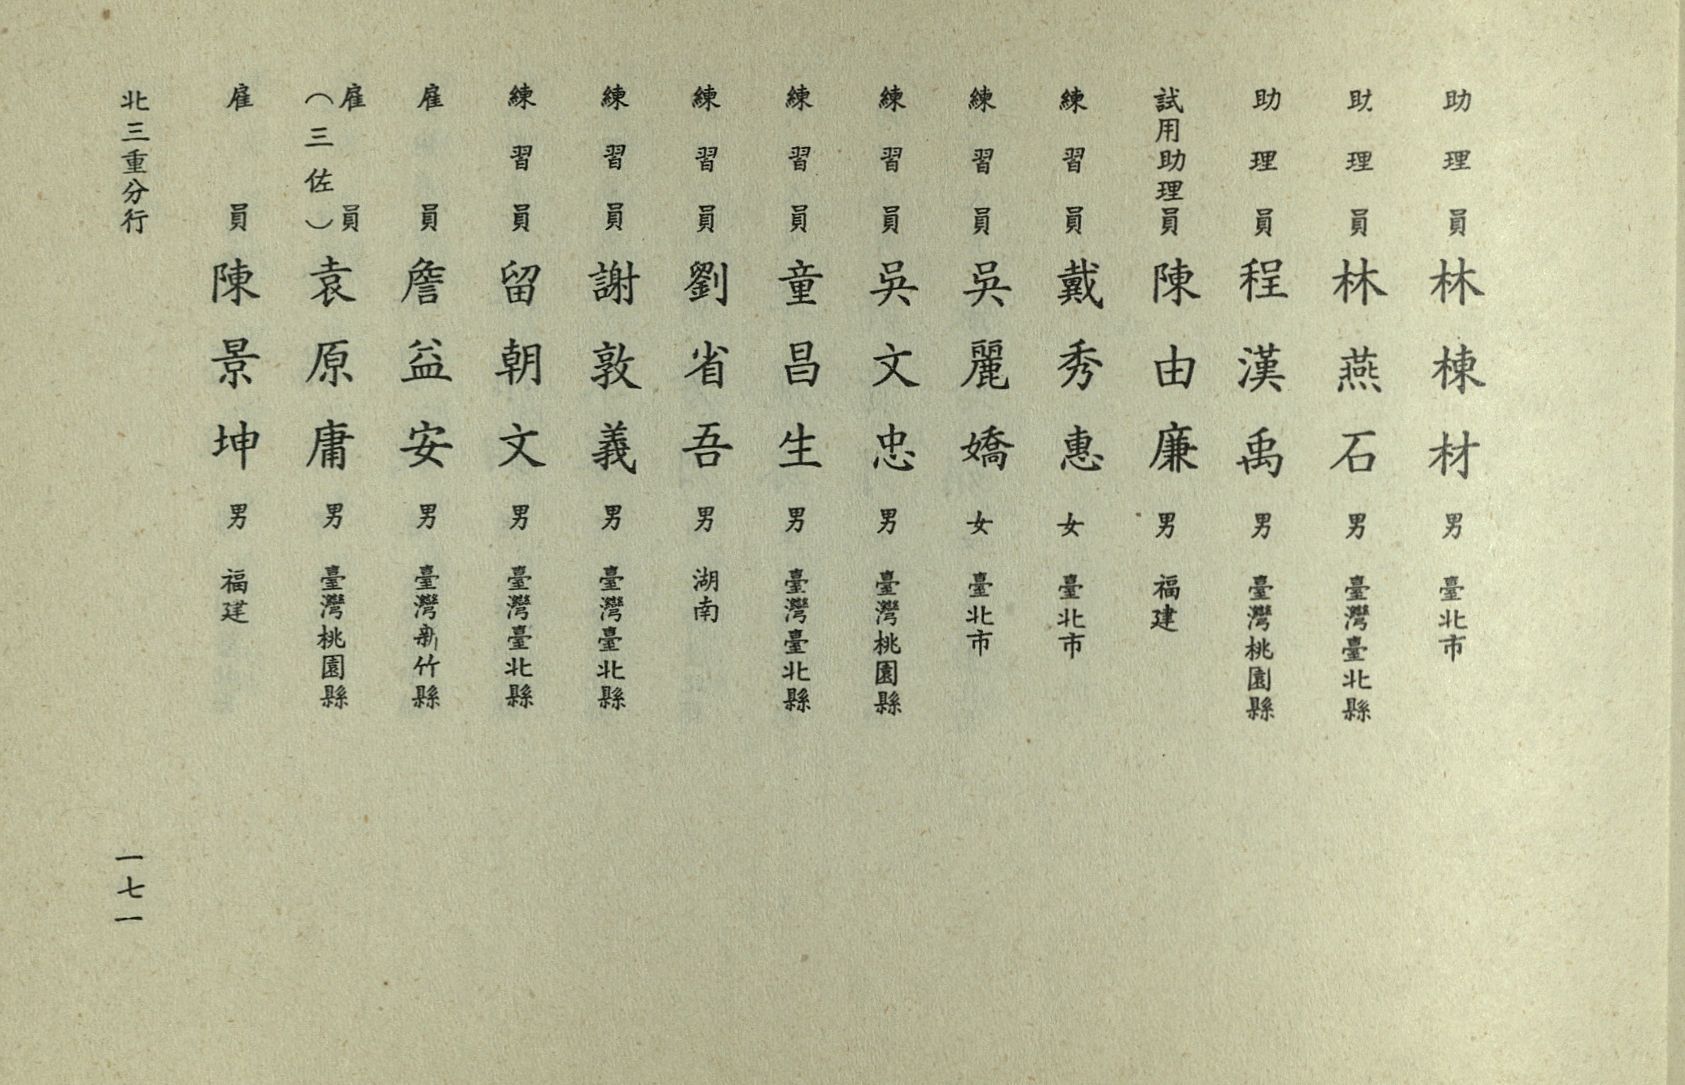 助理員 林棟材 男 臺北市
助理員 林燕石 男 臺灣臺北縣
助理員 程漢禹 男 臺灣桃園縣
試用助理員 陳由廉 男 福建
練習員 戴秀惠 女 臺北市
練習員 吳麗嬌 女 臺北市
練習員 吳文忠 男 臺灣桃園縣
練習員 童昌生 男 臺灣臺北縣
練習員 劉省吾 男 湖南
練習員 謝敦義 男 臺灣臺北縣
練習員 留朝文 男 臺灣臺北縣
雇員 詹益安 男 臺灣新竹縣
雇員(三佐) 袁原庸 男 臺灣桃園縣
雇員 陳景坤 男 福建
北三重分行 一七一